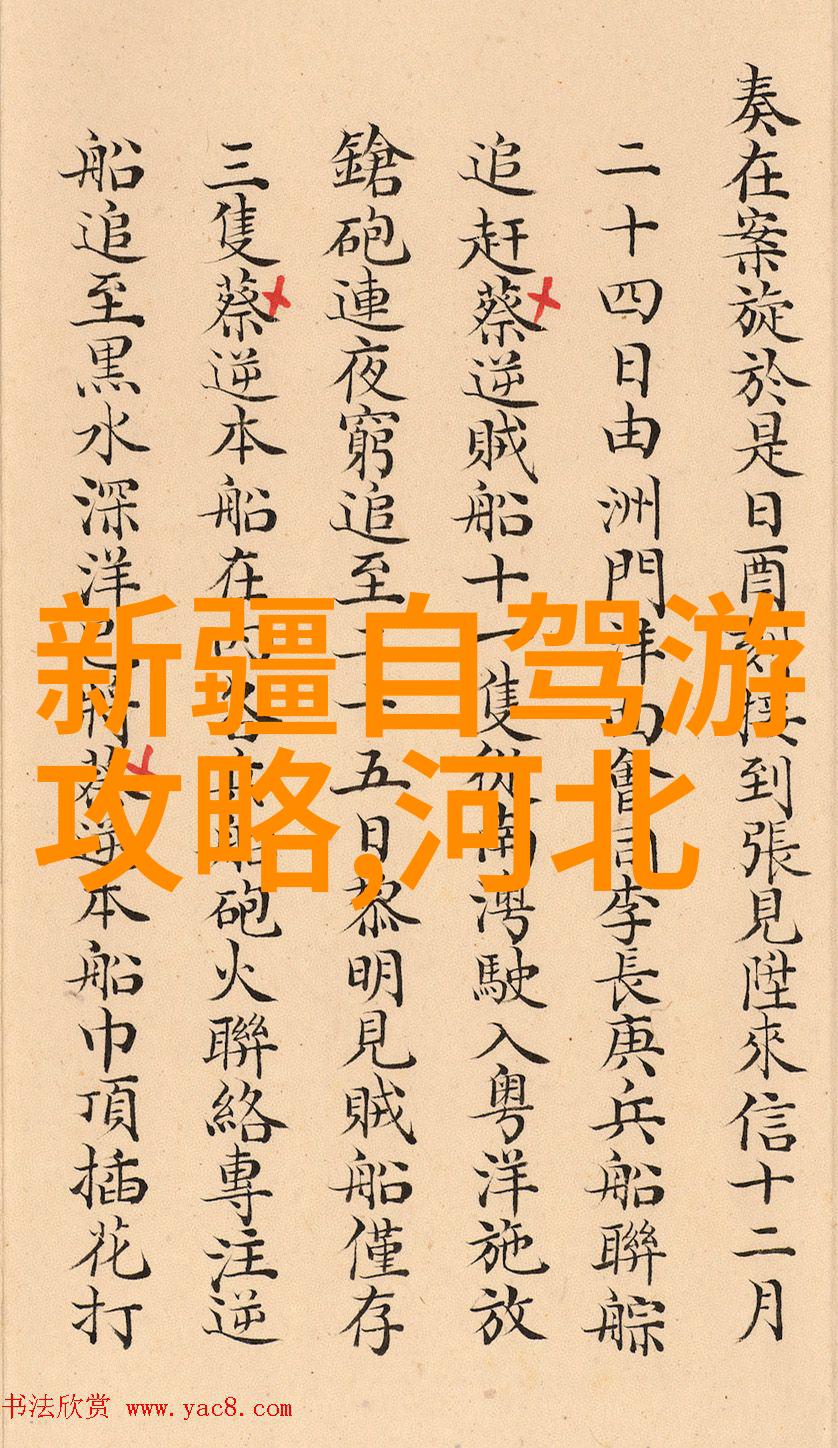 奏在案旋於是日酉刻接到張見陞來信十二月
二十四日由洲門洋面會同李長庚兵船聯䑸
追赶蔡逆賊船十一隻從南灣駛入粵洋施放
鎗砲連夜窮追至二十五日黎明見賊船僅存
三隻蔡逆本船在內各兵船砲火聯絡專注逆
船追至黑水深洋已將蔡逆本船巾頂插花打
新疆自驾游
攻略,河北
书法欣赏 www.yac8.com